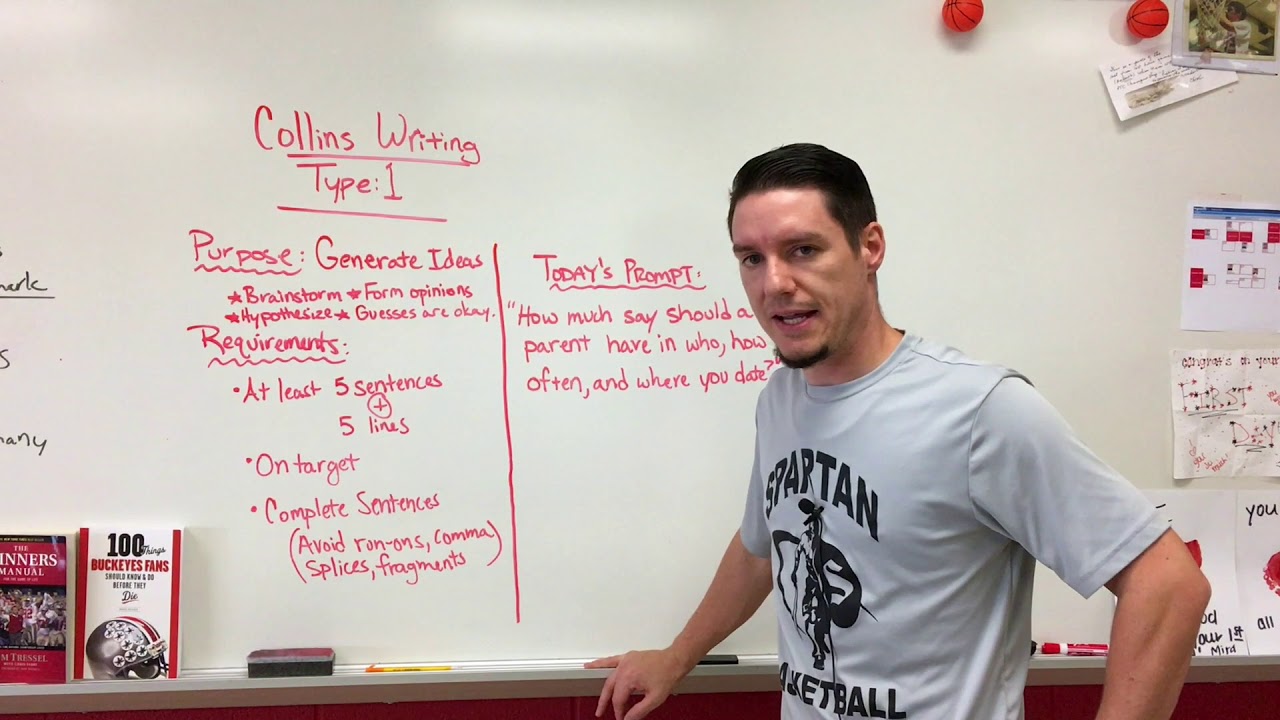 Collins Writing
Type: 1
Purpose: Generate Ideas
★Brainstorm ★Form opinions
★Hypothesize ★Guesses are okay.
Requirements:
•At least 5 sentences
+
5 lines
•On target
•Complete Sentences
(Avoid run-ons, comma
splices, fragments)
TODAY'S PROMPT:
"How much say should a
parent have in who, how
often, and where you date?"
many
THE
MANUAL
FOR THE GAME OF LIFE
TRESSEL
100 Things
BUCKEYES FANS
SHOULD KNOW & DO
BEFORE THEY
Die
SPARTAN
FIRST
you
all